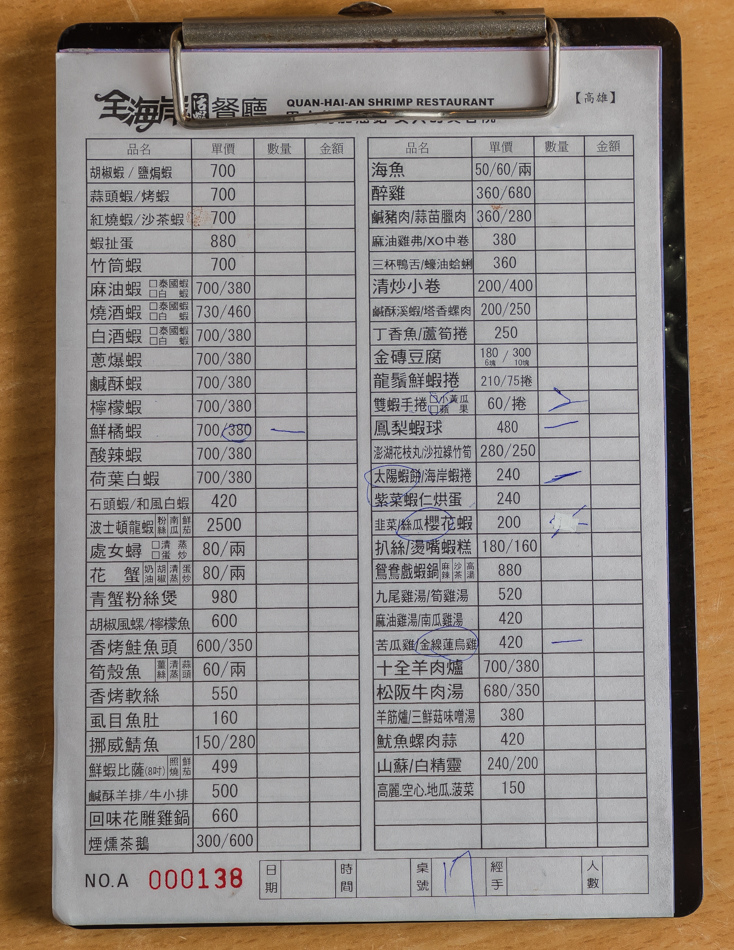 全海岸活蝦餐廳 QUAN-HAI-AN SHRIMP RESTAURANT 【高雄】
品名 單價 數量 金額
胡椒蝦/鹽焗蝦 700
蒜頭蝦/烤蝦 700
紅燒蝦/沙茶蝦 700
蝦扯蛋 880
竹筒蝦 700
麻油蝦 □泰國蝦 □白蝦 700/380
燒酒蝦 □泰國蝦 □白蝦 730/460
白酒蝦 □泰國蝦 □白蝦 700/380
蔥爆蝦 700/380
鹹酥蝦 700/380
檸檬蝦 700/380
鮮橘蝦 700/380
酸辣蝦 700/380
荷葉白蝦 700/380
石頭蝦/和風白蝦 420
波士頓龍蝦 粉絲 南瓜 鮮茄 2500
處女蟳 □清蒸 □蛋炒 80/兩
花蟹 奶油 胡椒 清蒸 蛋炒 80/兩
青蟹粉絲煲 980
胡椒風螺/檸檬魚 600
香烤鮭魚頭 600/350
筍殼魚 薑絲 清蒸 蒜頭 60/兩
香烤軟絲 550
虱目魚肚 160
挪威鯖魚 150/280
鮮蝦比薩(8吋) 照燒 鮮茄 499
鹹酥羊排/牛小排 500
回味花雕雞鍋 660
煙燻茶鵝 300/600
品名 單價 數量 金額
海魚 50/60/兩
醉雞 360/680
鹹豬肉/蒜苗臘肉 360/280
麻油雞弗/XO中卷 380
三杯鴨舌/蠔油蛤蜊 360
清炒小卷 200/400
鹹酥溪蝦/塔香螺肉 200/250
丁香魚/蘆筍捲 250
金磚豆腐 180/300 6塊 10塊
龍鬚鮮蝦捲 210/75捲
雙蝦手捲 □小黃瓜 □蘋果 60/捲
鳳梨蝦球 480
澎湖花枝丸/沙拉綠竹筍 280/250
太陽蝦餅/海岸蝦捲 240
紫菜蝦仁烘蛋 240
韭菜/絲瓜櫻花蝦 200
扒絲/燙嘴蝦糕 180/160
鴛鴦戲蝦鍋 麻辣 沙茶 高湯 880
九尾雞湯/筍雞湯 520
麻油雞湯/南瓜雞湯 420
苦瓜雞/金線蓮烏雞 420
十全羊肉爐 700/380
松阪牛肉湯 680/350
羊筋爐/三鮮菇味噌湯 380
魷魚螺肉蒜 420
山蘇/白精靈 240/200
高麗.空心.地瓜.菠菜 150
NO.A 000138 日期 時間 桌號 17 經手 人數